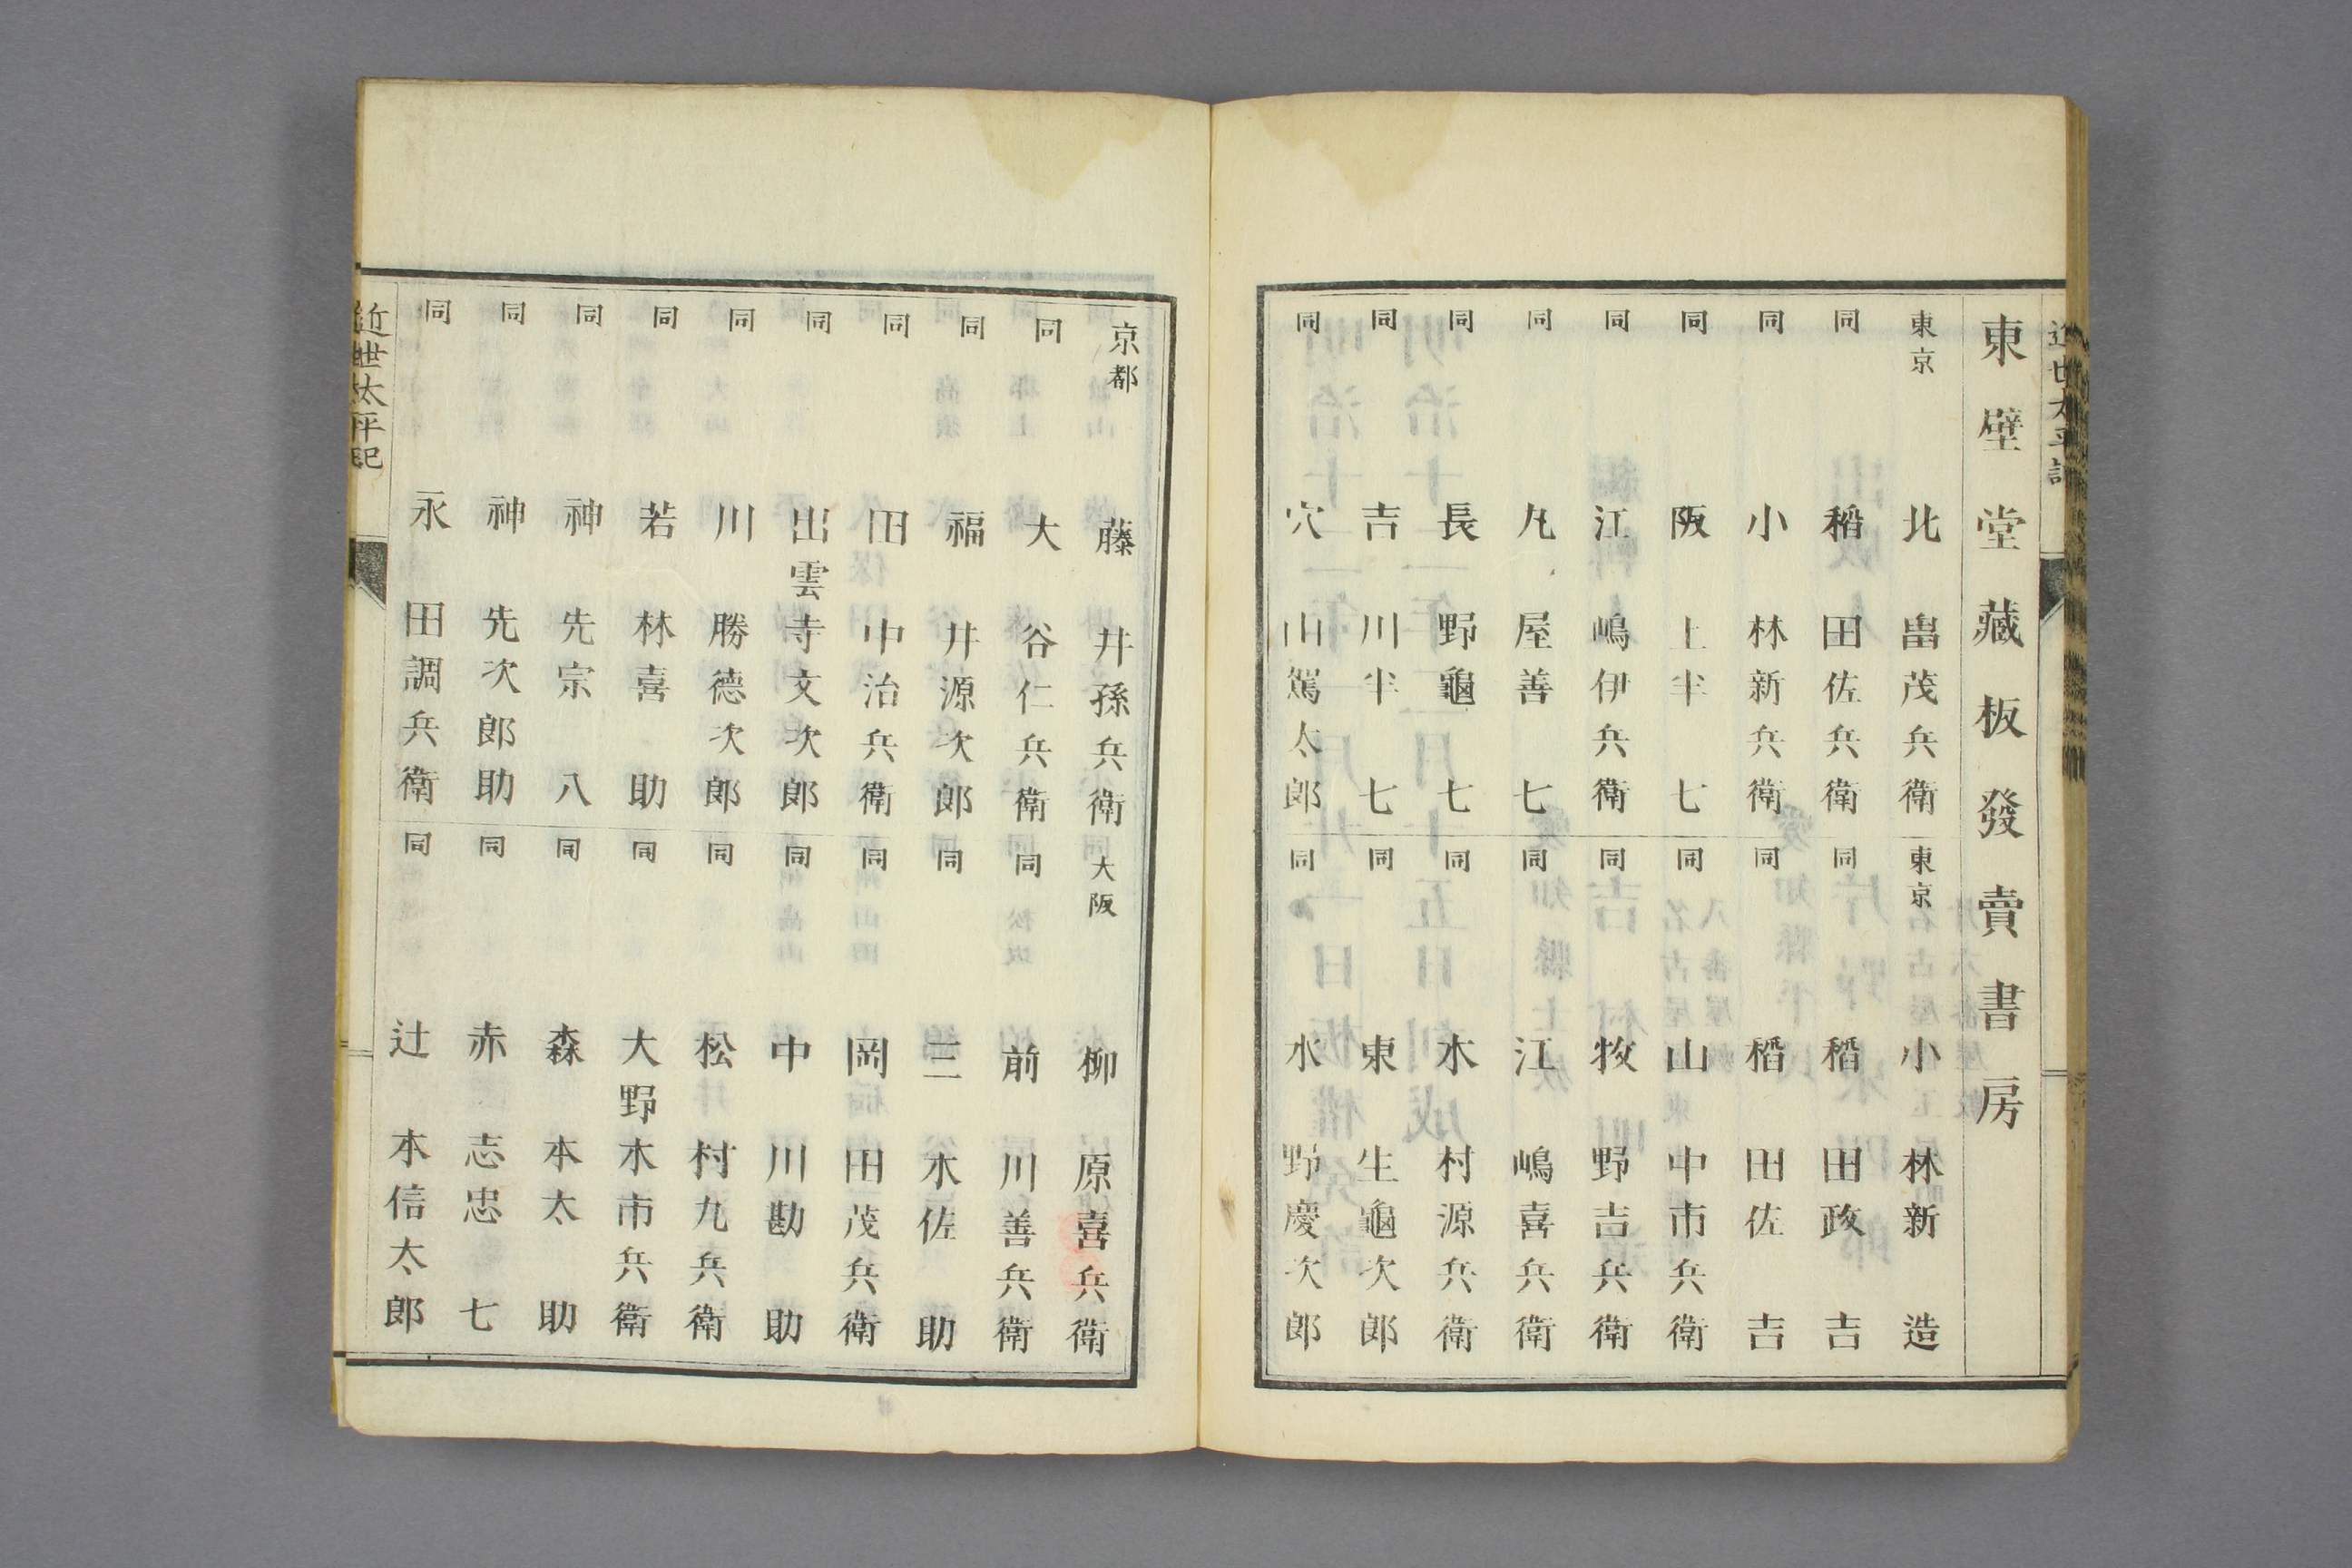 近世太平記
東壁堂藏板發賣書房
東京 北畠茂兵衛
同 稻田佐兵衛
同 小林新兵衛
同 阪上半七
同 江嶋伊兵衛
同 丸屋善七
同 長野龜七
同 吉川半七
同 穴山篤太郎
東京 小林新造
同 稻田政吉
同 稻田佐吉
同 山中市兵衛
同 牧野吉兵衛
同 江嶋喜兵衛
同 木村源兵衛
同 東生龜次郎
同 水野慶次郎
京都 藤井孫兵衛
同 大谷仁兵衛
同 福井源次郎
同 田中治兵衛
同 出雲寺文次郎
同 川勝德次郎
同 若林喜助
同 神先宗八
同 神先次郎助
同 永田調兵衛
大阪 柳原喜兵衛
同 前川善兵衛
同 三木佐助
同 岡田茂兵衛
同 中川勘助
同 松村九兵衛
同 大野木市兵衛
同 森本太助
同 赤志忠七
同 辻本信太郎
近世太平記